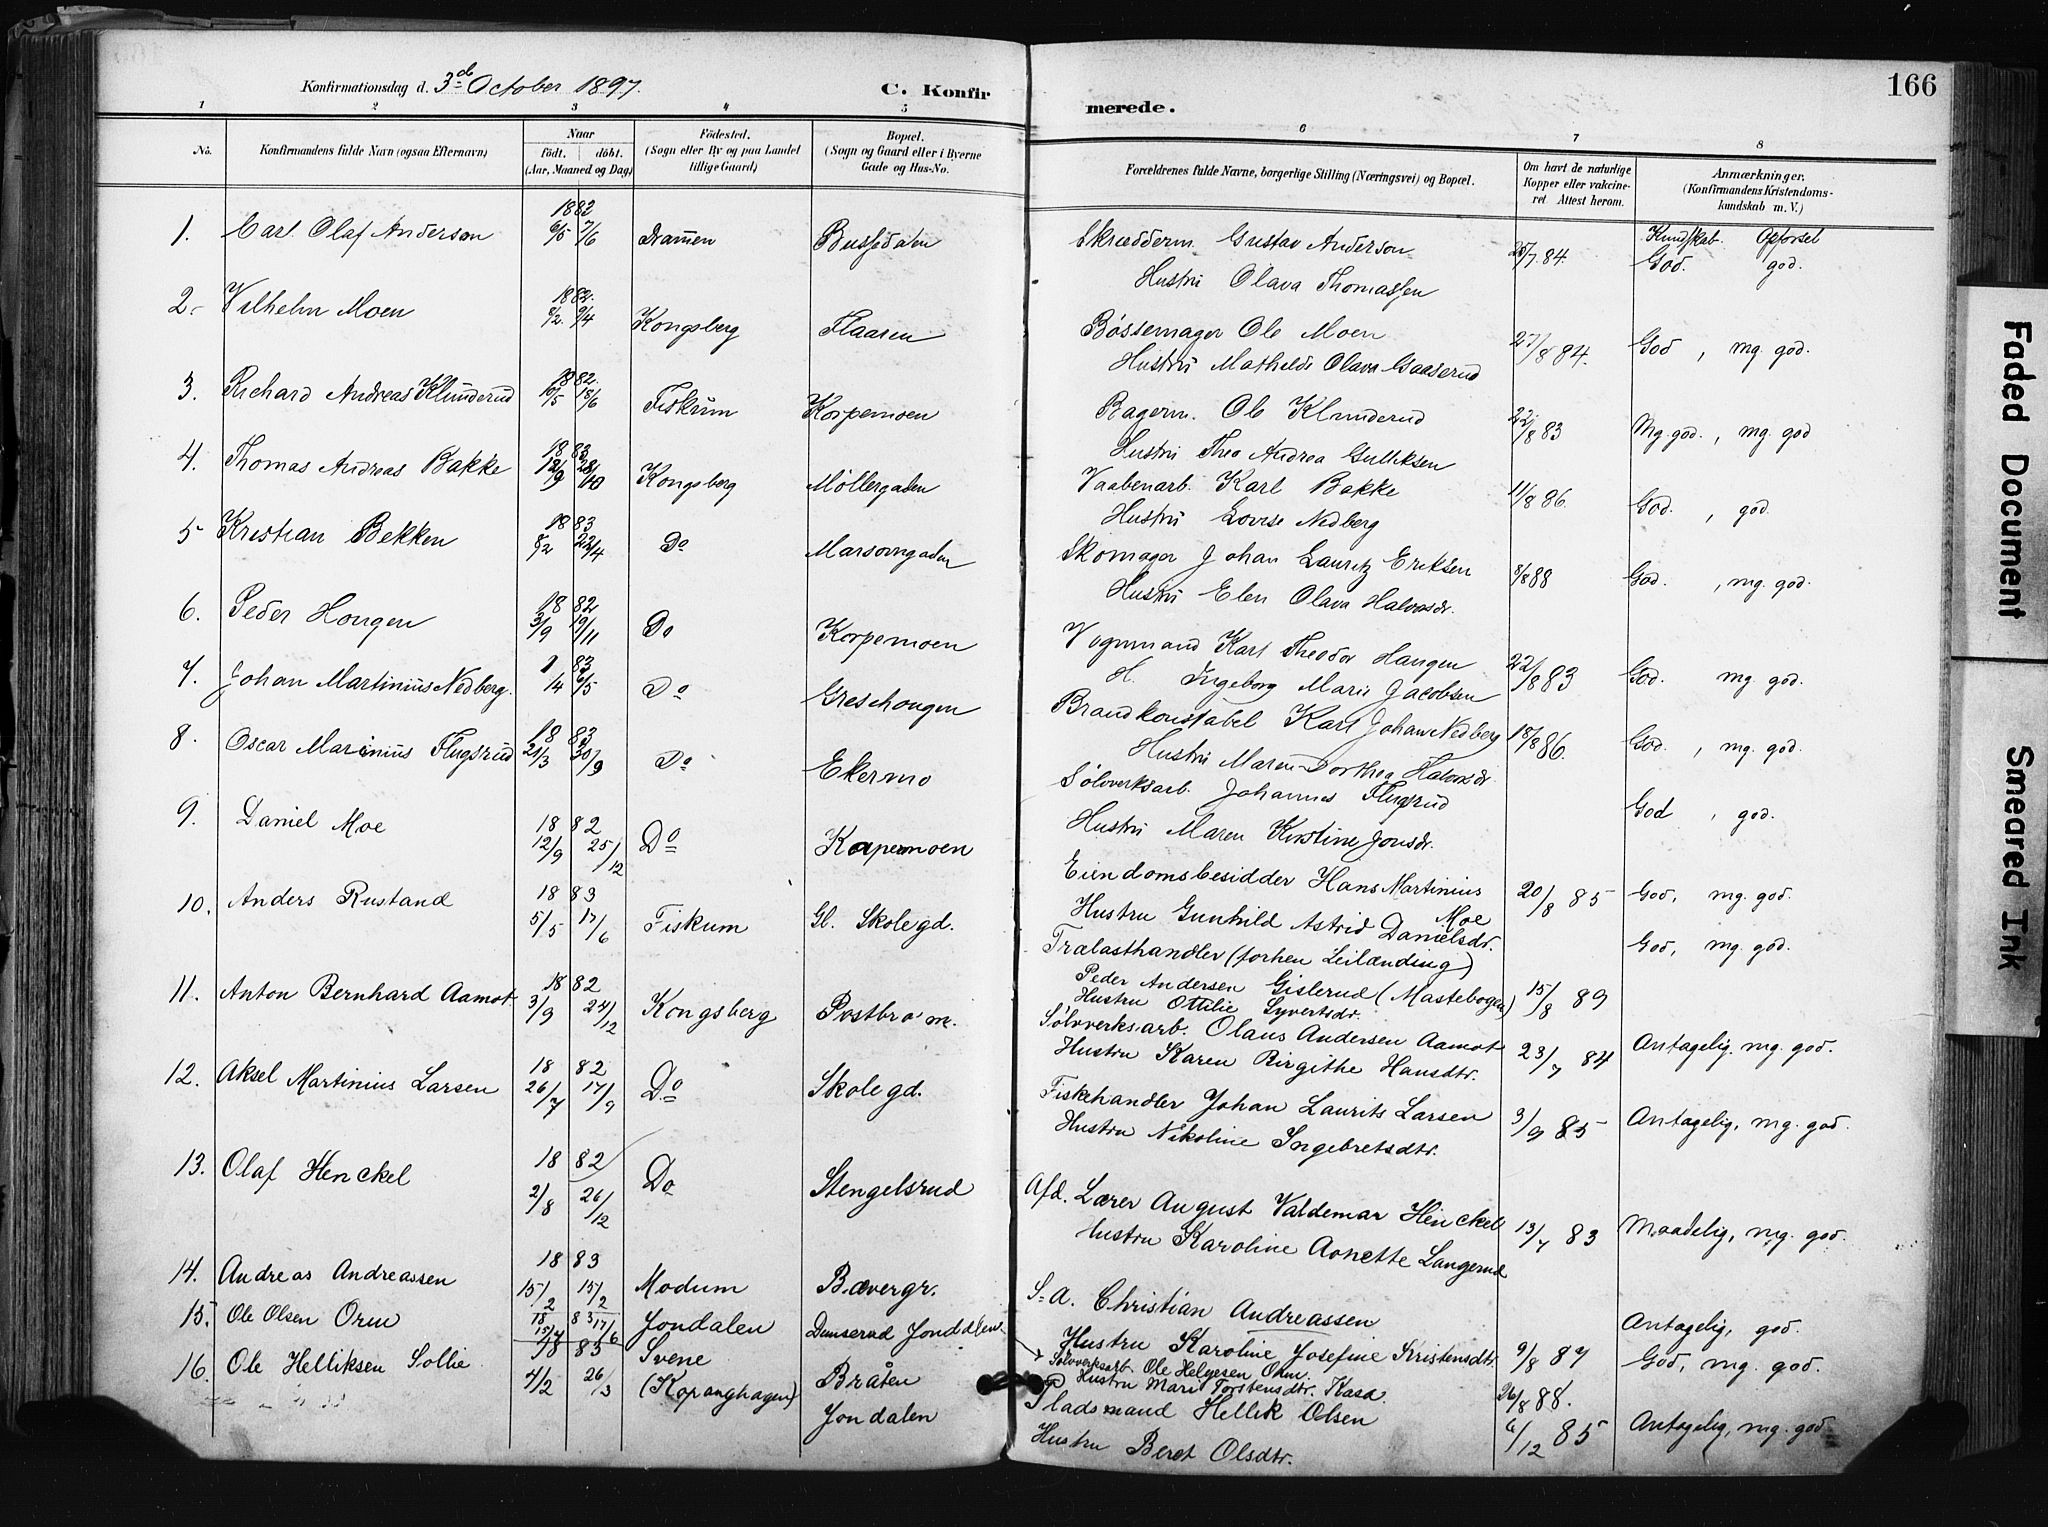 Konfirmationsdag d. 3d October 1897.
C. Konfir
merede.
166
1 2 3 4 5 6 7 8
No.
Konfirmandens fulde Navn (ogsaa Efternavn)
Naar
födt. döbt.
(Aar, Maaned og Dag)
Födested.
(Sogn eller By og paa Landet
tillige Gaard)
Bopæl.
(Sogn og Gaard eller i Byerne
Gade og Hus-No.
Forældrenes fulde Navne, borgerlige Stilling (Næringsvei) og Bopæl.
Om havt de naturlige
Kopper eller vakcine-
ret. Attest herom.
Anmærkninger.
(Konfirmandens Kristendoms-
kundskab m. V.)
Kundskab. Opførsel
1. Carl Olaf Anderson 1882 6/5 7/6 Dramen
Skrædderm. Gustav Anderson
Hustru Olava Thomassen
25/7 84. God. god.
2. Vilhelm Moen 1882 9/4 Kongsberg Flaaten
Bøssemager Ole Moen
Hustru Mathilde Olava Gaaserud
27/8 84. God, mg. god.
3. Richard Andreas Klunderud 1882. 10/5 18/6 Fiskum Korpemoen
Bagerm. Ole Klunderud
Hustru Thea Andrea Gulliksen
22/8 83 Mg. god., mg. god
4. Thomas Andreas Bakke 1883 12/9 28/10 Kongsberg Møllergaden
Vaabenarb. Karl Bakke
Hustru Lovise Nedberg
11/8 86. God., god.
5 Kristian Bekken 1883 8/2 22/4 Do
Skomager Johan Lauritz Eriksen
Hustru Elen Olava Halvorsdr.
8/8 88 God., mg. god.
6. Peder Hongen 1882 3/9 19/11 Do Korpemoen
Vognmand Karl Theodor Haugen
H. Ingeborg Marie Jacobsen
22/8 83 God. mg. god.
7. Johan Martinius Nedberg. 83 14 6/5 Do
Brandkonstabel Karl Johan Nedberg
Hustru Maren Dorthea Halvorsdr.
18/8 86. God., mg. god.
8. Oscar Marinius Flugsrud 1883 21/3 30/9 Do Ekermo
Sølvverksarb. Johannes Flugsrud
Hustru Maren Kirstine Jonsdr.
God, god.
9. Daniel Moe 1882 12/9 25/12 Do Korpemoen
Eiendomsbesidder Hans Martinius
Moe
Hustru Gunhild Astrid Danielsdr.
20/8 85 God, mg. god.
10. Anders Rustand 1883 5/5 17/6 Fiskum Gl. Skolegd.
Tralasthandler (forhen Leilænding)
Peder Andersen Gislerud (Mastebogen)
Hustru Ottilie Syvertsdr.
15/8 89 God, mg. god.
11. Anton Bernhard Aamot 1882 3/9 24/12 Kongsberg
Sølvverksarb. Olaus Andersen Aamot
Hustru Karen Birgithe Hansdtr.
23/7 84 Antagelig. mg. god.
12. Aksel Martinius Larsen 1882 26/7 17/9 Do Skolegd.
Fiskehandler Johan Laurits Larsen
Hustru Nikoline Ingebretsdtr.
3/9 85 Antagelig, mg. god.
13. Olaf Henckel 1882 2/8 26/12 Do Stengelsrud
Afd. Lærer August Valdemar Henckel
Hustru Karoline Agnette Langerud
13/7 83 Maadelig, mg. god.
14. Andreas Andreassen 1883 15/2 15/2 Modum Bævergr.
S. A. Christian Andreassen
Hustru Karoline Josefine Kristensdtr
9/8 87 Antagelig, god.
15. Ole Olsen Orm 1883 17/6 Jondalen
Sølvverksarb. Ole Helgesen Orm.
Hustru Mari Torstensdtr. Kasa
26/8 88. God, mg. god.
16. Ole Helliksen Sollie 1883 4/2 26/3 Svene
(Kopanghagen) Bråten
Jondalen
Pladsmand Hellik Olsen
Hustru Beret Olsdtr.
6/12 85 Antagelig, mg. god.
Faded Document
Smeared Ink